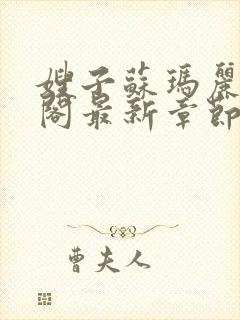 嫂子蘇瑪麗
閣最新章節
曹夫人